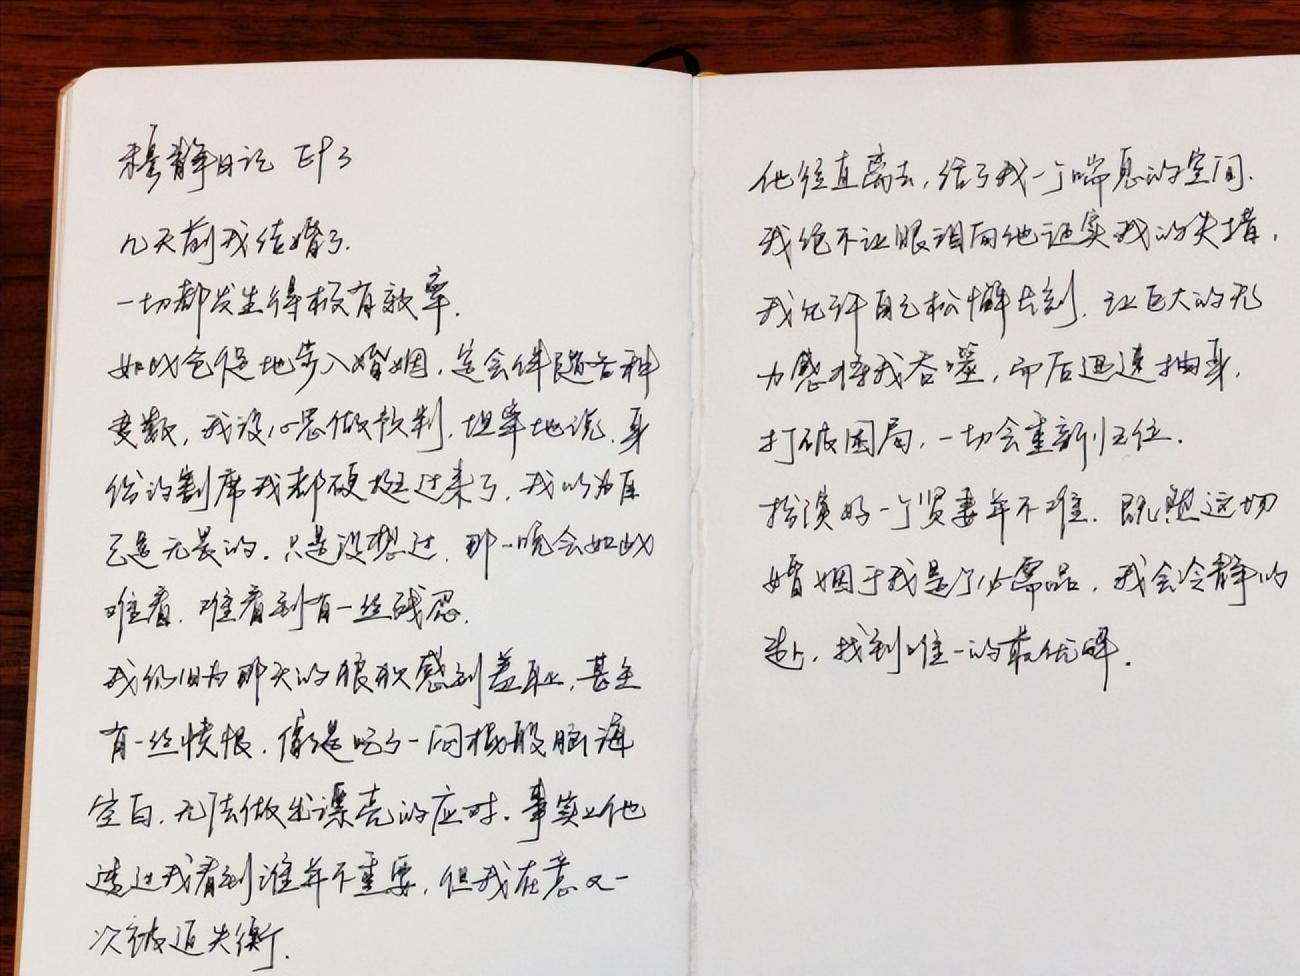 穆静日记 EP3
几天前我结婚了.
一切都发生得极有效率.
如此仓促地步入婚姻，定会伴随各种
变数，我没心思做预判，坦率地说，身
份的割席我都硬挺过来了，我以为自
己是无畏的. 只是没想过，那一晚会如此
难看，难看到有一丝残忍.
我仍旧为那天的狼狈感到羞耻，甚至
有一丝愤恨，像是吃了一闷棍般脑海
空白，无法做出漂亮的应对. 事实上他
透过我看到谁并不重要，但我在意又一
次被迫失衡.
他径直离去，给了我一个喘息的空间.
我绝不让眼泪向他证实我的失措，
我允许自己松懈片刻，让巨大的无
力感将我吞噬，而后迅速抽身，
打破困局，一切会重新归位.
扮演好一个贤妻并不难，既然这切
婚姻于我是个必需品，我会冷静的
，找到唯一的最优解.